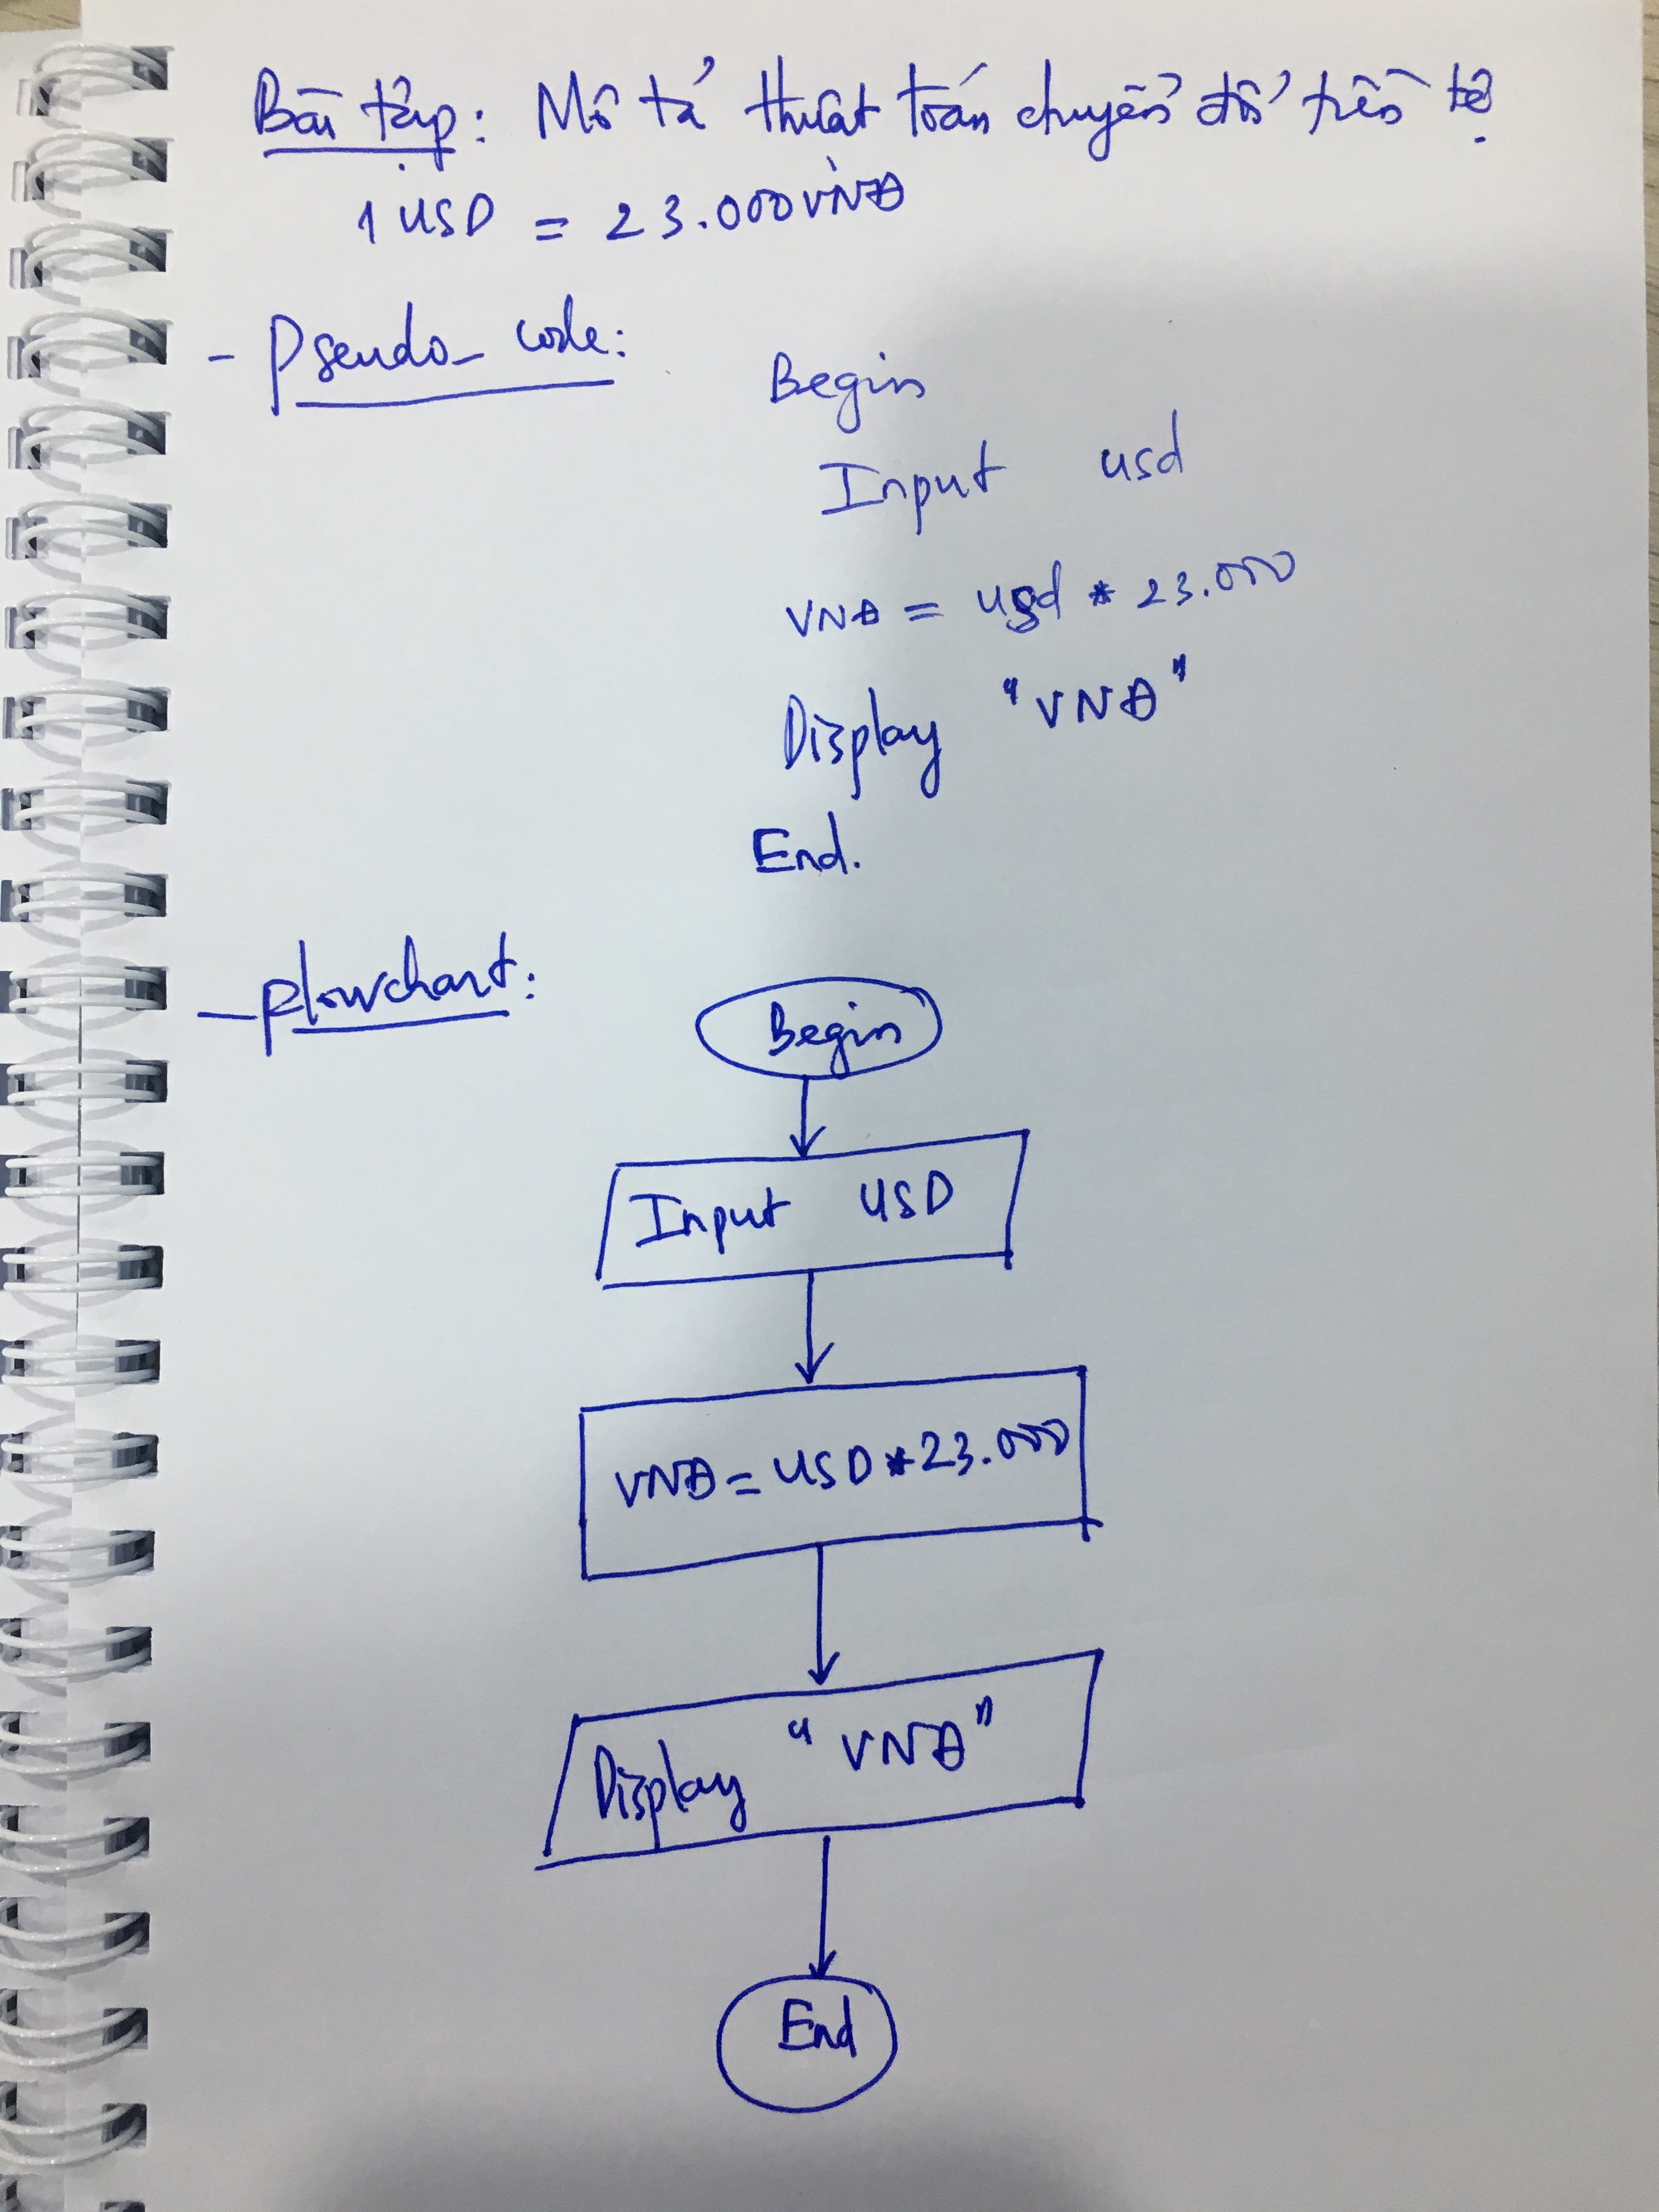 Bài tập: Mô tả thuật toán chuyển đổi tiền tệ
1 USD = 23.000 VNĐ
- Pseudo_code:
Begin
Input usd
VNĐ = usd * 23.000
Display "VNĐ"
End.
- Flowchart:
Begin
Input USD
VNĐ = USD * 23.000
Display "VNĐ"
End